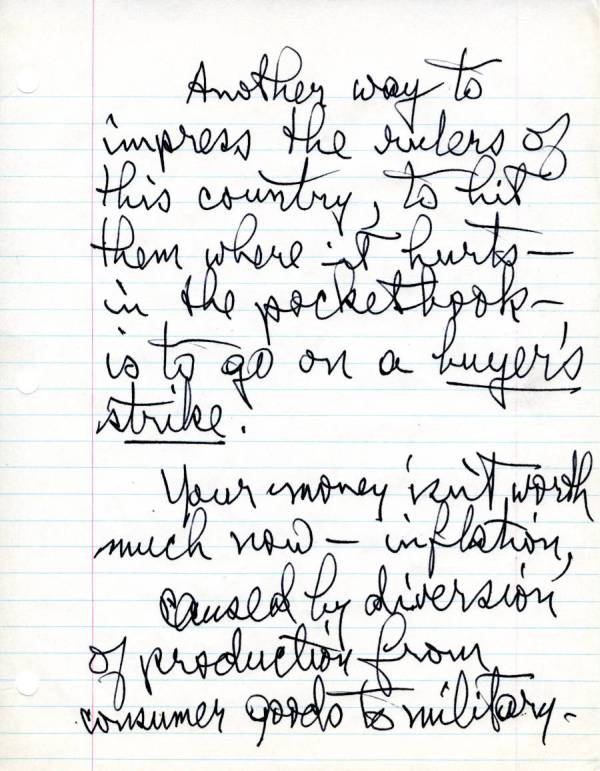 Another way to
impress the rulers of
this country, to hit
them where it hurts—
in the pocketbook—
is to go on a buyer's
strike.
Your money isn't worth
much now — inflation,
caused by diversion
of production from
consumer goods to military.